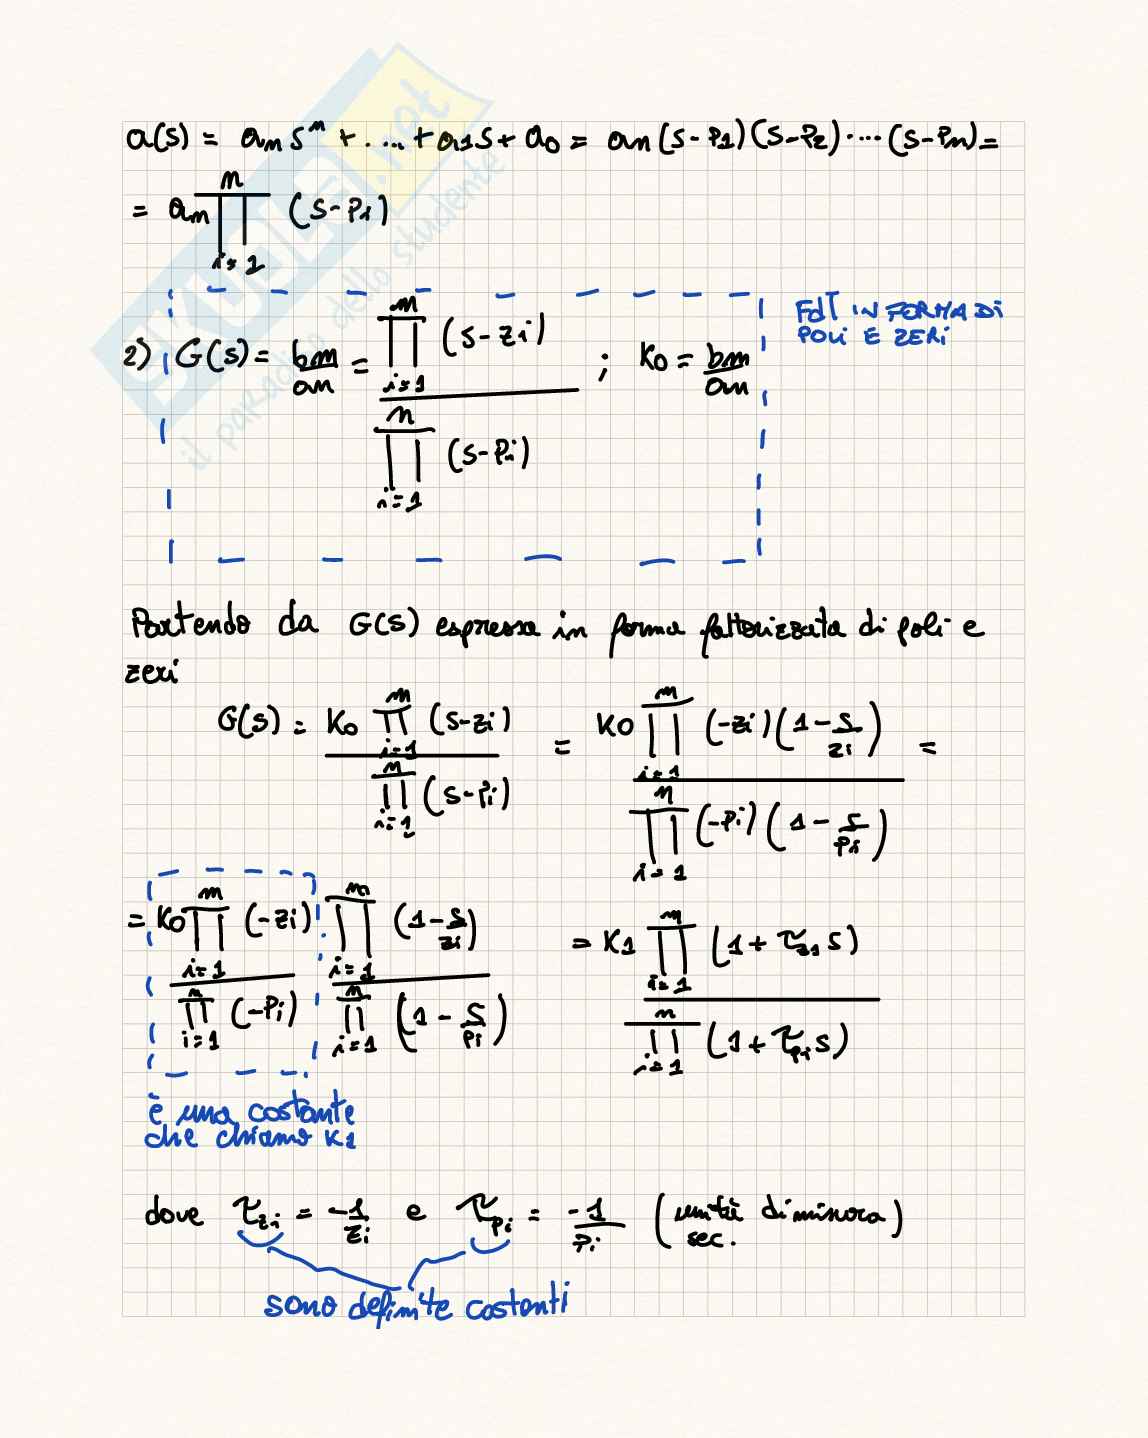 a(s) = an sⁿ + ... + a1s + a0 = an (s-P1)(s-P2)·...(s-Pn) =
= an ∏ i=1 n (s-Pi)
2) G(s) = bm/an = ∏ i=1 m (s-zi) / ∏ i=1 n (s-Pi) ; K0 = bm/an
FdT IN FORMA DI
POLI E ZERI
Partendo da G(s) espressa in forma fattorizzata di poli e
zeri
G(s) = K0 ∏ i=1 m (s-zi) / ∏ i=1 n (s-Pi) = K0 ∏ i=1 m (-zi)(1-s/zi) / ∏ i=1 n (-Pi)(1-s/Pi) =
= K0 ∏ i=1 m (-zi) / ∏ i=1 n (-Pi) ∏ i=1 m (1-s/zi) / ∏ i=1 n (1-s/Pi) = K1 ∏ i=1 m (1+τz1 s) / ∏ i=1 n (1+τPi s)
è una costante
che chiamo K1
dove τzi = -1/zi e τPi = -1/Pi (unità di misura
sec.)
sono definite costanti
SKUOLA.net
il paradiso dello studente